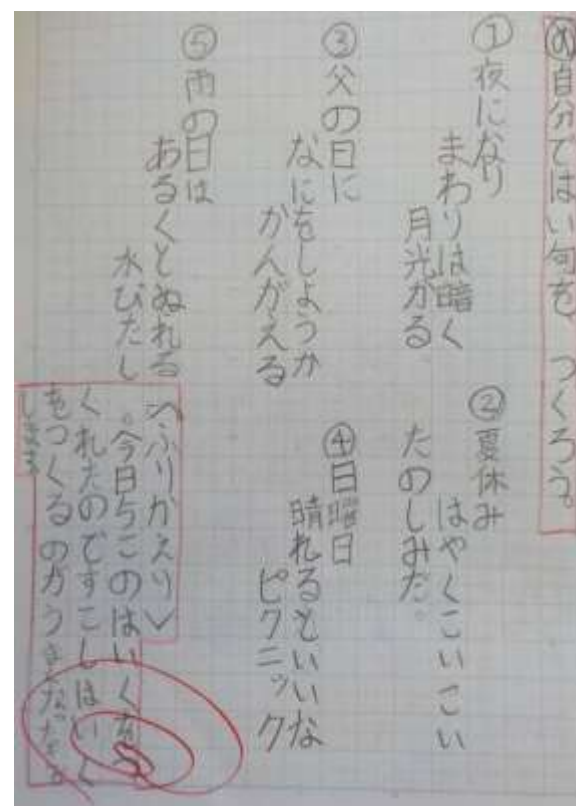 め自分ではい句を、つくろう。
①夜になり
まわりは暗く
月光がる
②夏休み
はやくこいこい
たのしみだ。
③父の日に
なにをしようか
かんがえる
④日曜日
晴れるといいな
ピクニック
⑤雨の日は
あるくとぬれる
水びたし
〈ふりかえり〉
。今日ちこのはいくを
くれたのですこしはいく
をつくるのがうまくなったき
します。